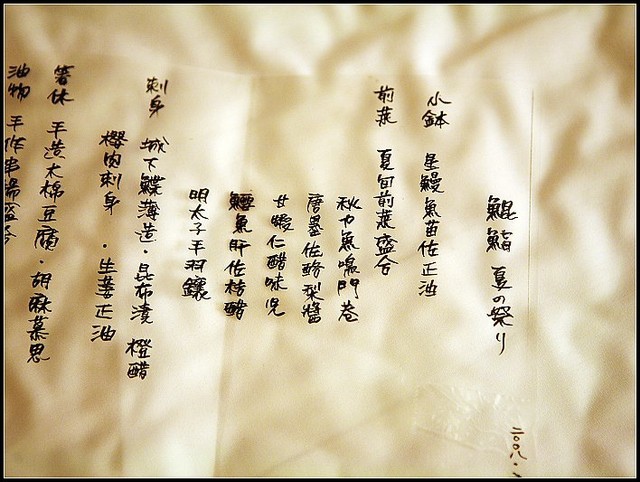 鯤鮨 夏の祭り
二〇〇八、
小鉢 星鰻魚苗佐正油
前菜 夏旬前菜盛合
秋刀魚鳴門巻
唐墨佐酪梨醬
甘蝦仁醋味兒
鱈魚肝佐桔醋
明太子手羽鑲
刺身 城下鰈薄造·昆布漬 橙醋
櫻肉刺身·生姜正油
箸休 手造木棉豆腐·胡麻慕思
油物 手作串揚盛合